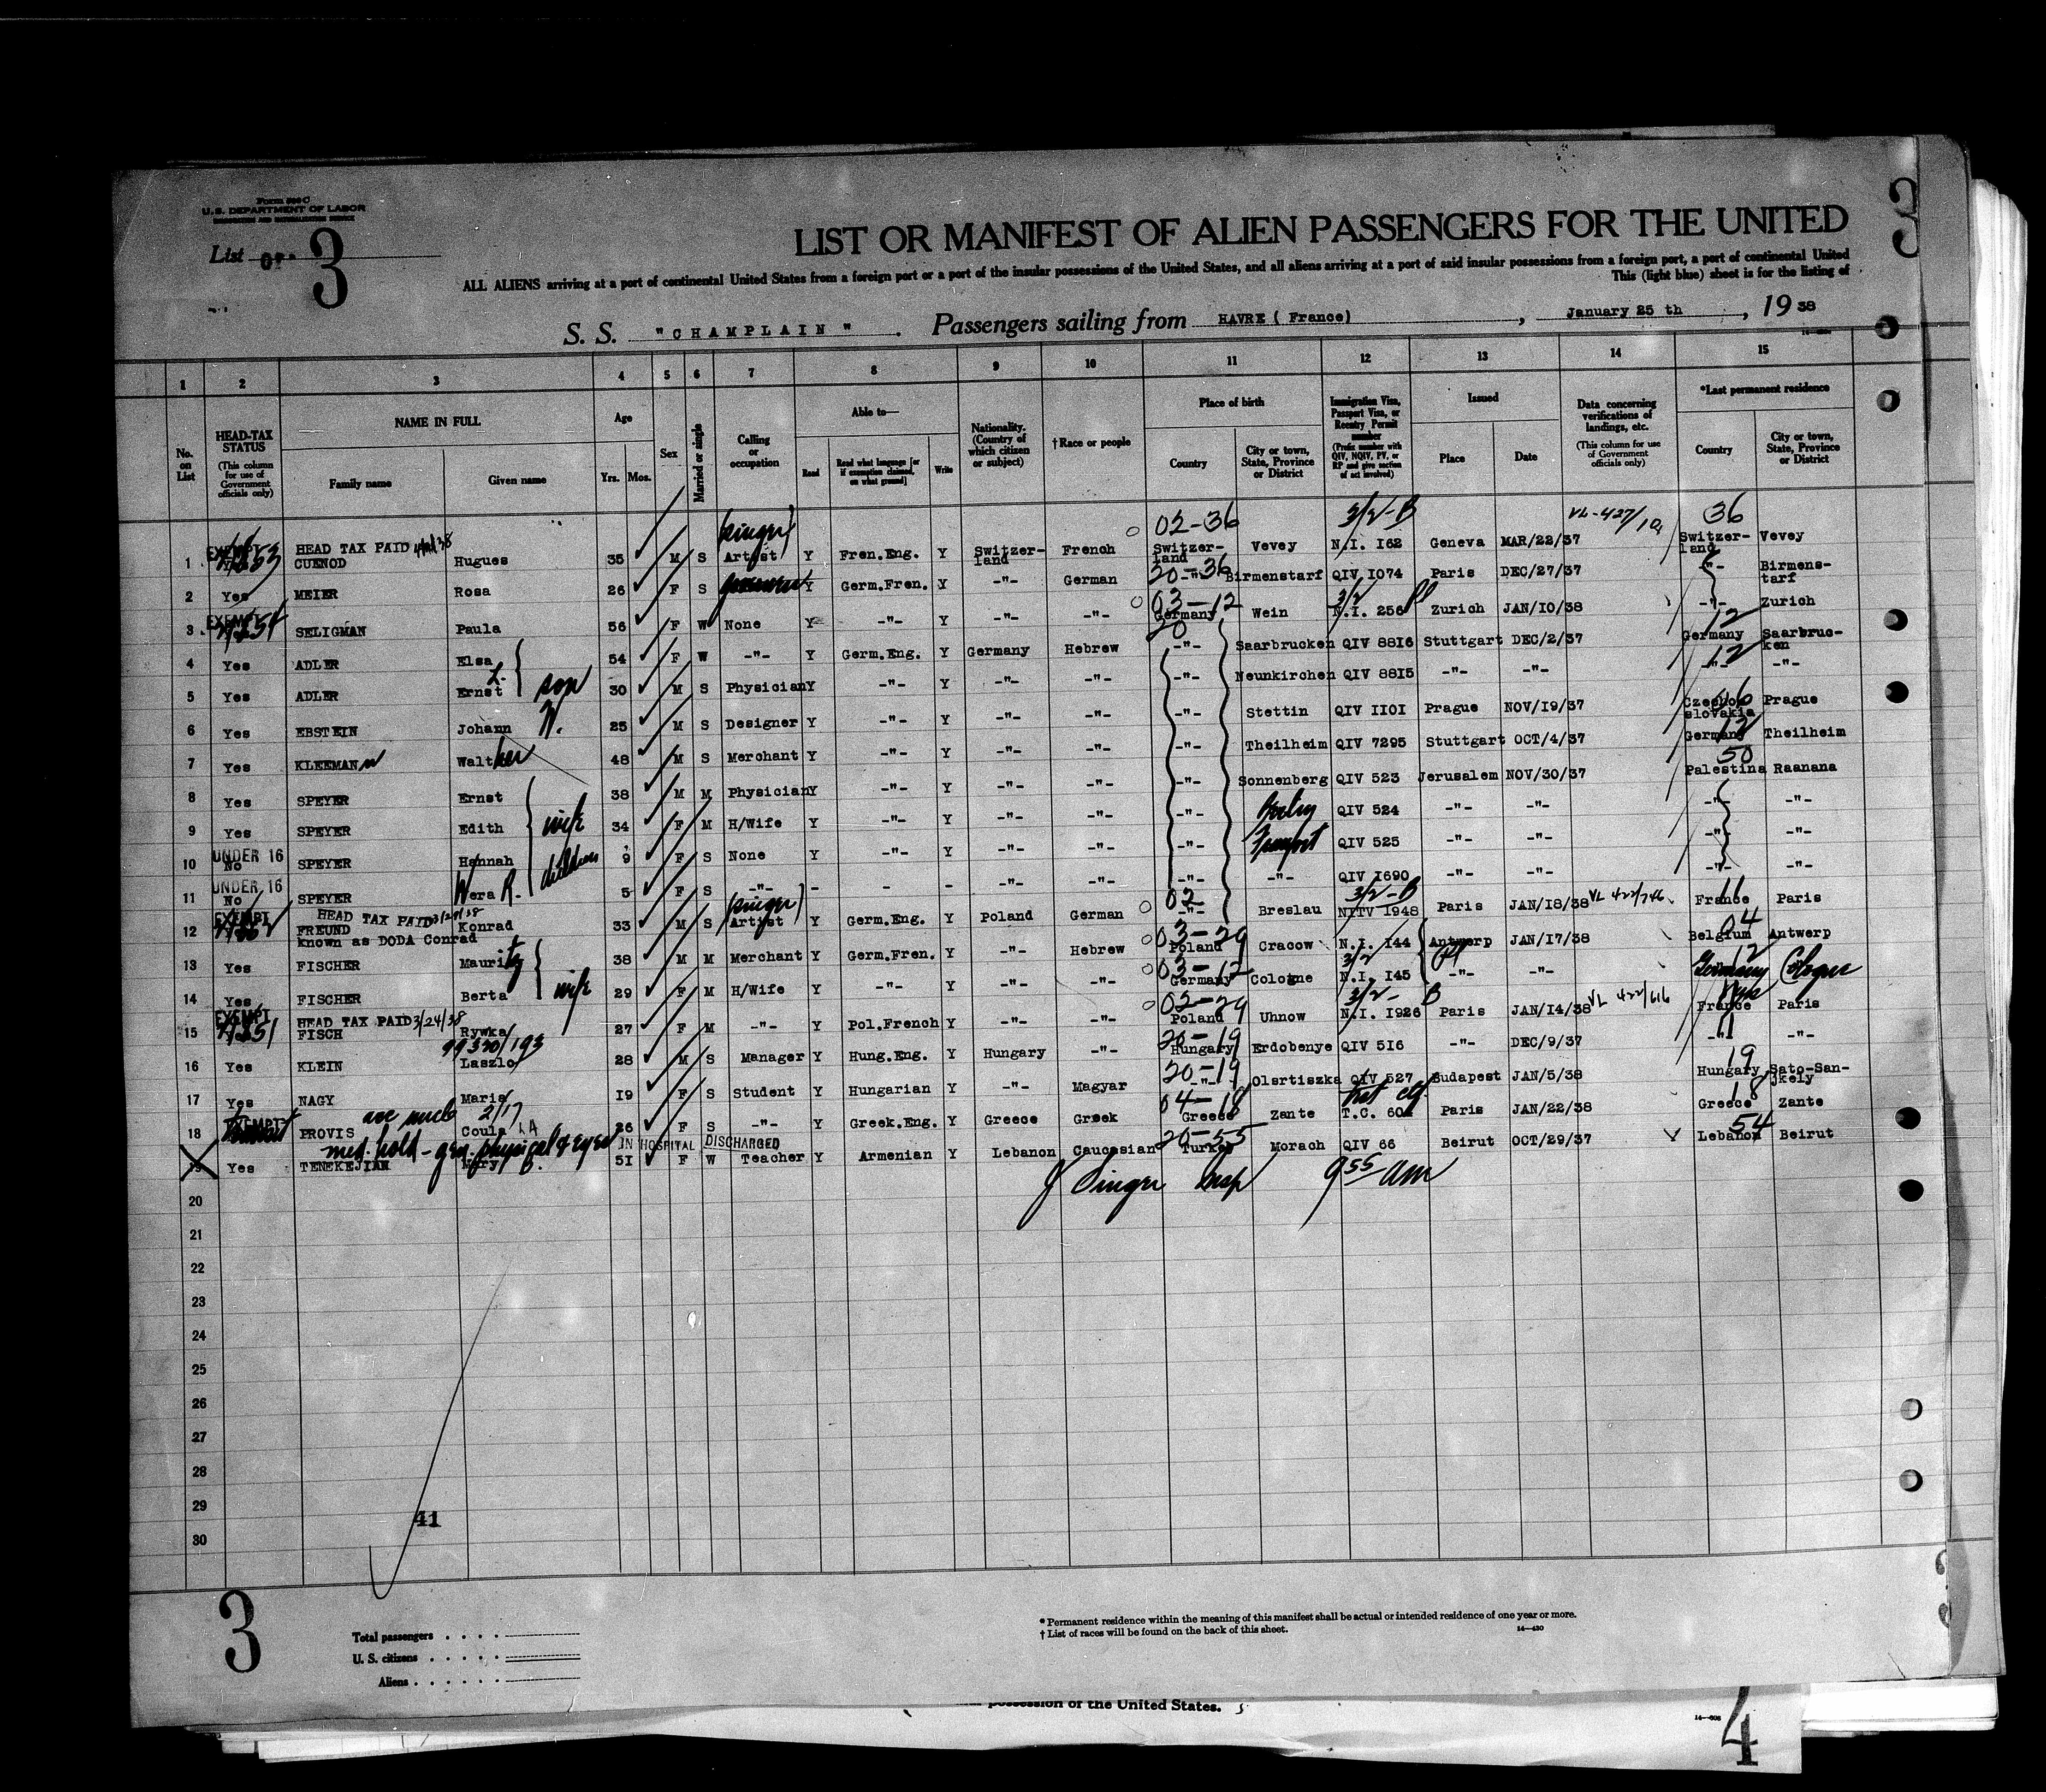 Form 500 C
U. S. DEPARTMENT OF LABOR
IMMIGRATION AND NATURALIZATION SERVICE
List 3
3
LIST OR MANIFEST OF ALIEN PASSENGERS FOR THE UNITED
ALL ALIENS arriving at a port of continental United States from a foreign port or a port of the insular possessions of the United States, and all aliens arriving at a port of said insular possessions from a foreign port, a port of continental United
This (light blue) sheet is for the listing of
S. S. "CHAMPLAIN" . Passengers sailing from HAVRE ( France) , January 25 th , 19 38
1 2 3 4 5 6 7 8 9 10 11 12 13 14 15
No. on List
HEAD-TAX STATUS (This column for use of Government officials only)
NAME IN FULL Family name Given name
Age Yrs. Mos.
Sex
Married or single
Calling or occupation
Able to— Read Read what language [or if exemption claimed, on what ground] Write
Nationality. (Country of which citizen or subject)
†Race or people
Place of birth Country City or town, State, Province or District
Immigration Visa, Passport Visa, or Reentry Permit number (Prefix number with QIV, NQIV, PV, or RP and give section of act involved)
Issued Place Date
Data concerning verifications of landings, etc. (This column for use of Government officials only)
*Last permanent residence Country City or town, State, Province or District
(singer) 02-36 3/2-B VL-427/ 36
1 EXEMPT HEAD TAX PAID CUENOD Hugues 35 M S Artist Y Fren.Eng. Y Switzer-land French Switzer-land Vevey N.I. I62 Geneva MAR/22/37 Switzer-land Vevey
20-36
2 Yes MEIER Rosa 26 F S Y Germ.Fren. Y -"- German -"- Birmenstarf QIV I074 Paris DEC/27/37 -"- Birmens-tarf
03-12 3/2
3 EXEMPT SELIGMAN Paula 56 F W None Y -"- Y -"- -"- Germany Wein N.I. 256 Zurich JAN/I0/38 -"- Zurich
20 12
4 Yes ADLER Elsa 54 F W -"- Y Germ.Eng. Y Germany Hebrew -"- Saarbrucken QIV 88I6 Stuttgart DEC/2/37 Germany Saarbruc-ken
L. son 12
5 Yes ADLER Ernst 30 M S Physician Y -"- Y -"- -"- -"- Neunkirchen QIV 88I5 -"- -"- -"- -"-
6 Yes EBSTEIN Johann W. 25 M S Designer Y -"- Y -"- -"- -"- Stettin QIV II0I Prague NOV/I9/37 Czechoslovakia Prague
12
7 Yes KLEEMANN Walther 48 M S Merchant Y -"- Y -"- -"- -"- Theilheim QIV 7295 Stuttgart OCT/4/37 Germany Theilheim
50
8 Yes SPEYER Ernst 38 M M Physician Y -"- Y -"- -"- -"- Sonnenberg QIV 523 Jerusalem NOV/30/37 Palestina Raanana
9 Yes SPEYER Edith wife 34 F M H/Wife Y -"- Y -"- -"- -"- QIV 524 -"- -"- -"- -"-
10 UNDER 16 No SPEYER Hannah children 9 F S None Y -"- Y -"- -"- -"- QIV 525 -"- -"- -"- -"-
11 UNDER 16 No SPEYER Wera R. 5 F S -"- - - - -"- -"- -"- -"- QIV I690 -"- -"- -"- -"-
(singer) 02 3/2-B VL 422/746 11
12 EXEMPT HEAD TAX PAID FREUND Konrad 33 M S Artist Y Germ.Eng. Y Poland German -"- Breslau I948 Paris JAN/I8/38 France Paris
known as DODA Conrad
03-29 04
13 Yes FISCHER Mauritz 38 M M Merchant Y Germ.Fren. Y -"- Hebrew Poland Cracow N.I. I44 Antwerp JAN/I7/38 Belgium Antwerp
03-12 3/2 12
14 Yes FISCHER Berta wife 29 F M H/Wife Y -"- Y -"- -"- Germany Cologne N.I. I45 -"- -"- Germany Cologne
02-29 3/2-B VL 422/616
15 EXEMPT HEAD TAX PAID 3/24/38 FISCH Rywka 27 F M -"- Y Pol.French Y -"- -"- Poland Uhnow N.I. I926 Paris JAN/I4/38 France Paris
99320/193 20-19 11
16 Yes KLEIN Laszlo 28 M S Manager Y Hung.Eng. Y Hungary -"- Hungary Erdobenye QIV 5I6 -"- DEC/9/37 -"- -"-
20-19 19
17 Yes NAGY Maria I9 F S Student Y Hungarian Y -"- Magyar -"- Olsrtiszka QIV 527 Budapest JAN/5/38 Hungary Sato-San-jkely
2/17 04-18 18
18 EXEMPT PROVIS Coula 26 F S -"- Y Greek.Eng. Y Greece Greek Greece Zante T.C. Paris JAN/22/38 Greece Zante
med. hold - gen. physical & eyes IN HOSPITAL DISCHARGED 20-55 54
19 Yes TENEKEJIAN Mary 5I F W Teacher Y Armenian Y Lebanon Caucasian Turkey Morach QIV 66 Beirut OCT/29/37 Lebanon Beirut
J Singer Insp 9 55 am
20
21
22
23
24
25
26
27
28
29
30
41
3
Total passengers
U. S. citizens
Aliens
* Permanent residence within the meaning of this manifest shall be actual or intended residence of one year or more.
† List of races will be found on the back of this sheet.
14—430
possession of the United States.
4